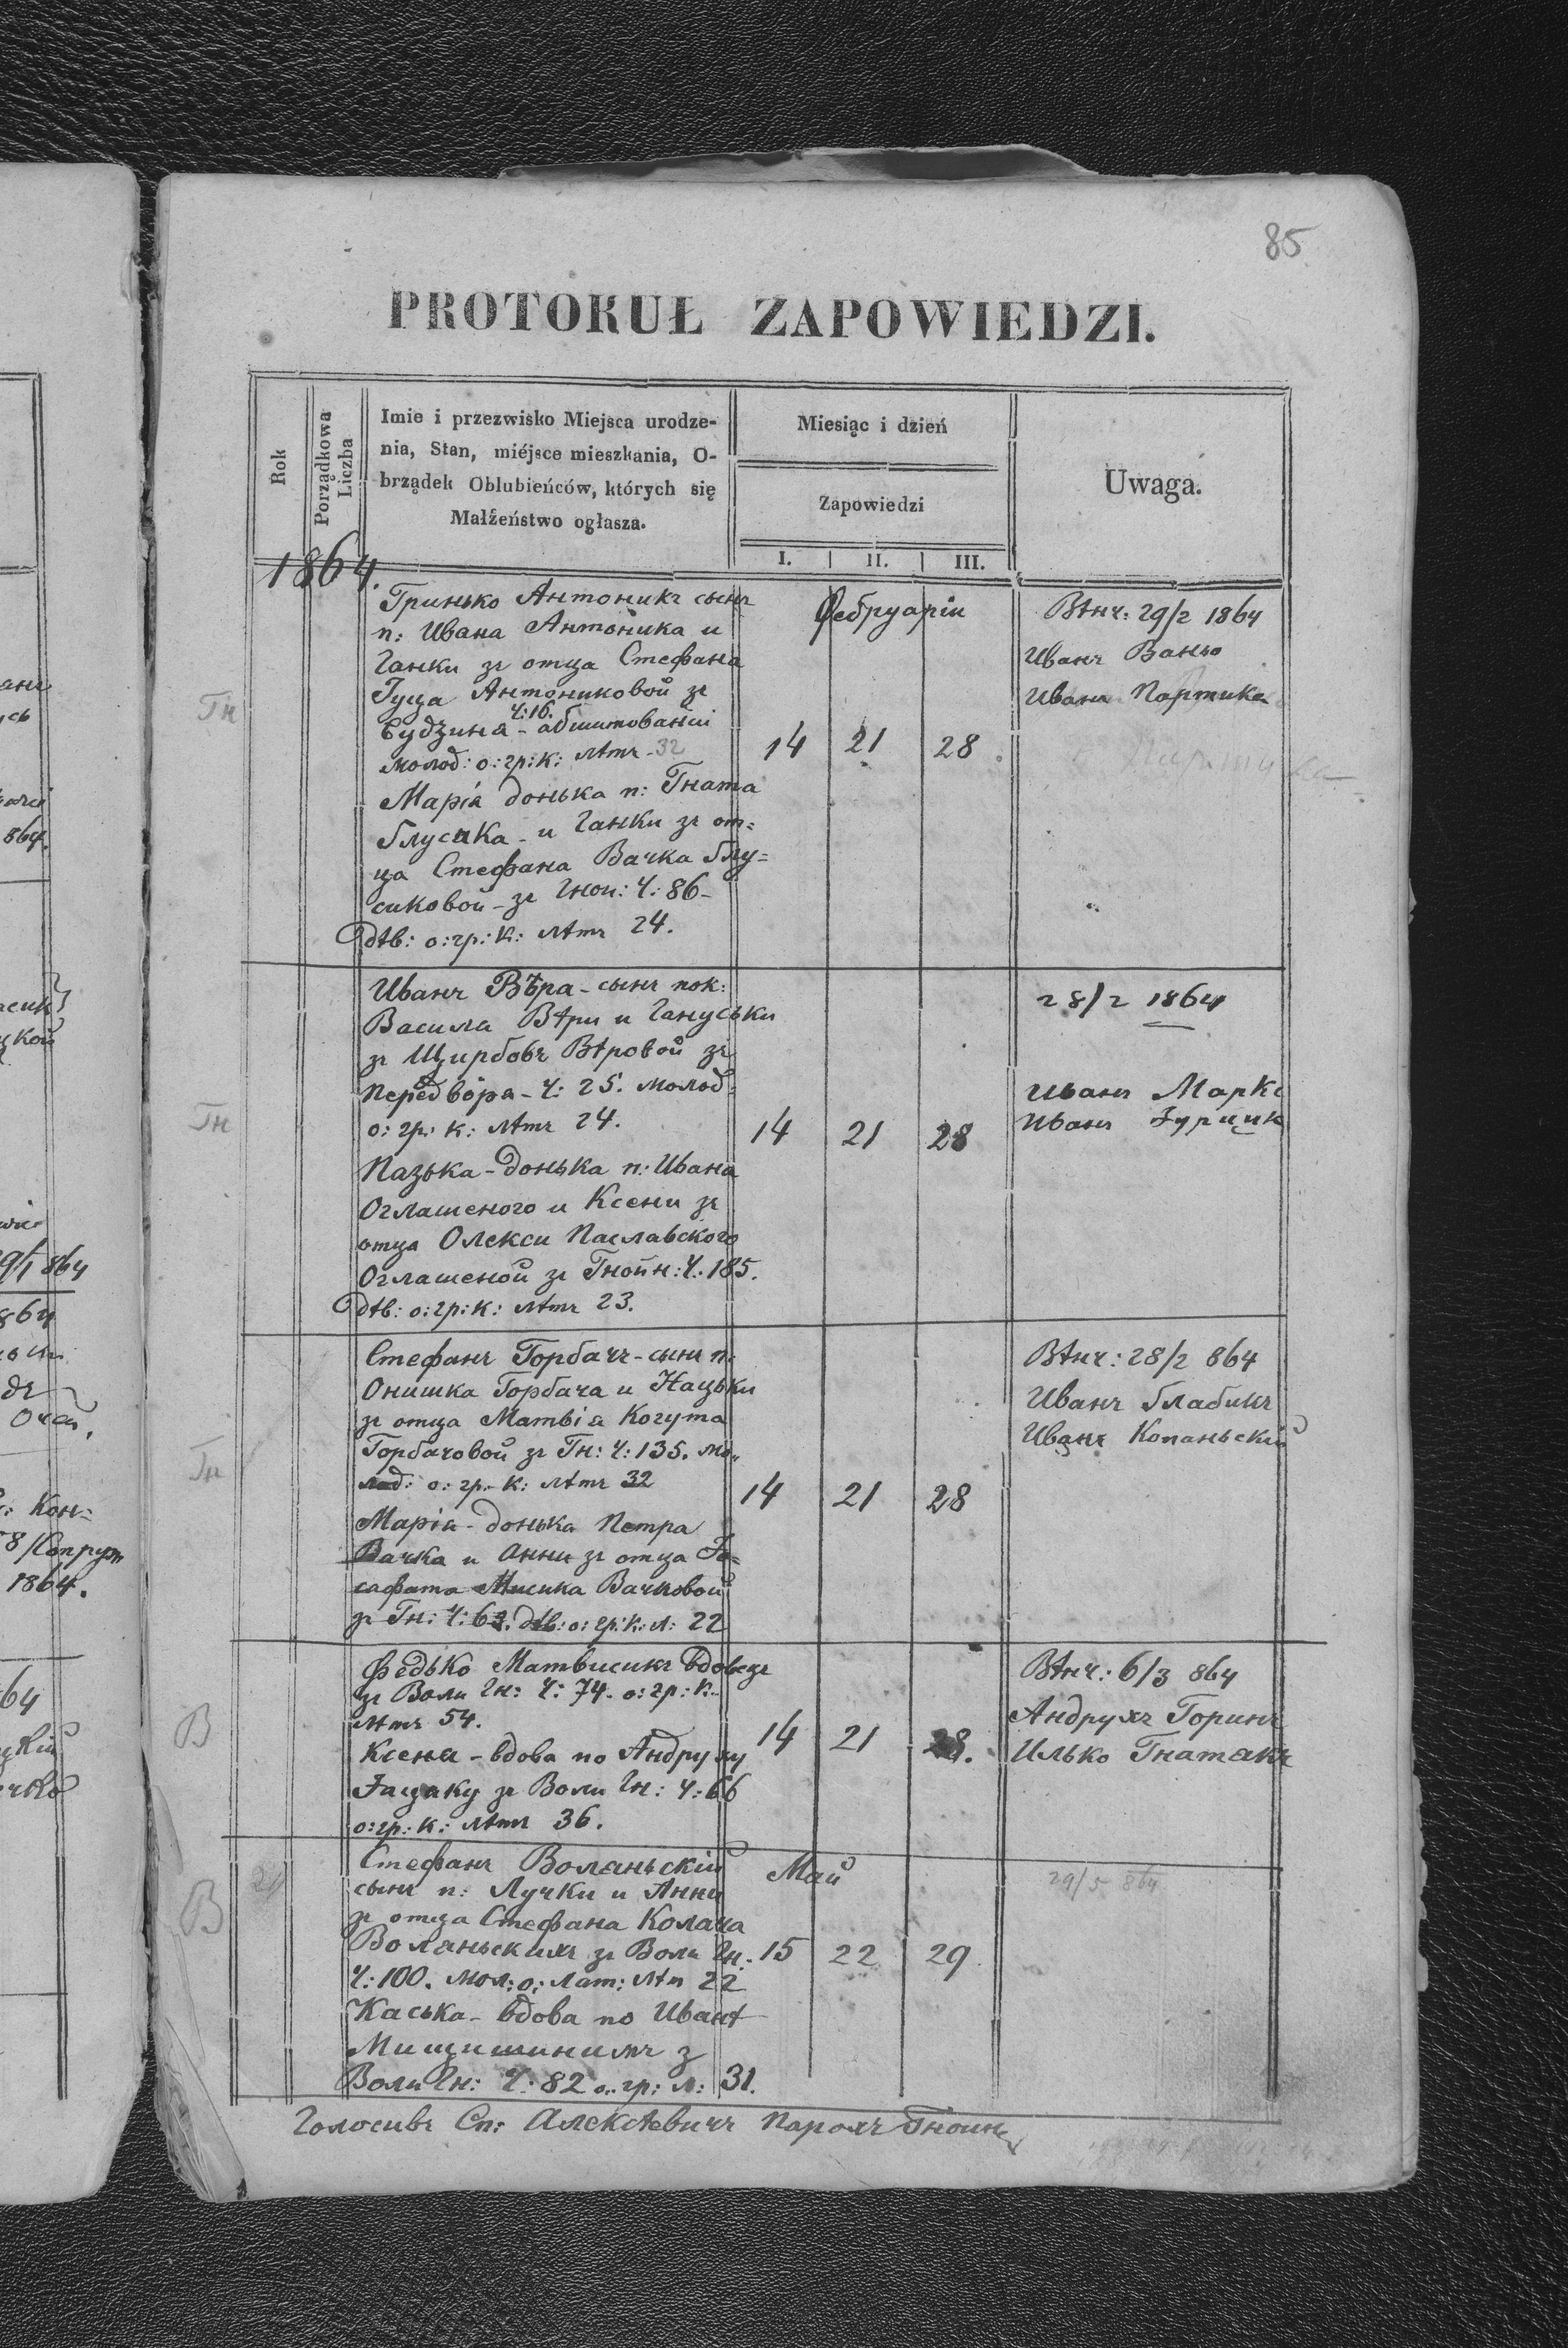 85
PROTOKUŁ ZAPOWIEDZI.
Rok
Porządkowa Liczba
Imie i przezwisko Miejsca urodze-
nia, Stan, miéjsce mieszkania, O-
brządek Oblubieńców, których się
Małżeństwo ogłasza.
Miesiąc i dzień
Zapowiedzi
I. II. III.
Uwaga.
1864.
Гн
Гринько Антоникъ сынъ
п: Ивана Антоника и
Ганки зъ отца Стефана
Гуца Антониковой зъ
Ч: 16.
молод: о: гр: к: лѣтъ 32
Марія донька п: Гната
Глусика и Ганки зъ от=
ца Стефана Вачка Глу=
сиковой - зъ Гнои: Ч: 86 -
дѣв: о: гр: к: лѣтъ 24.
Фебруарій
14 21 28
Вѣнч: 29/2 1864
Иванъ Ваньо
Иванъ Партика
Гн
Иванъ Вѣра - сынъ пок:
Василя Вѣри и Гануськи
зъ Щирбовъ Вѣровой зъ
Передвôра - Ч: 25. молод:
о: гр: к: лѣтъ 24.
Пазька - донька п: Ивана
Оглашеного и Ксени зъ
отца Олекси Паславского
Оглашеной зъ Гнойн: Ч: 185.
дѣв: о: гр: к: лѣтъ 23.
14 21 28
28/2 1864
Иванъ
Иванъ
Гн
Стефанъ Горбачъ - сынъ п:
Онишка Горбача и Нацьки
зъ отца Матвія Когута
Горбачовой зъ Гн: Ч: 135. мо„
лод: о: гр: к: лѣтъ 32
Марія - донька Петра
Вачка и Анни зъ отца Іо=
сафата Мисика Вачковой
зъ Гн: Ч: 63. дѣв: о: гр: к: л: 22
14 21 28
Вѣнч: 28/2 864
Иванъ Глабикъ
Иванъ Копаньскій
В
Федько Матвисикъ вдовецъ
зъ Воли Гн: Ч: 74. о: гр: к:
лѣтъ 54.
Ксеня - вдова по Андруху
зъ Воли Гн: Ч: 66
о: гр: к: лѣтъ 36.
14 21 28.
Вѣнч: 6/3 864
Андрухъ Горинъ
Илько Гнатакъ
В
Стефанъ Воляньскій
сынъ п: Лучки и Анни
зъ отца Стефана Колача
Воляньскихъ зъ Воли Гн:
Ч: 100. мол: о: лат: лѣтъ 22
Каська - вдова по Иванѣ
Мищишинимъ з
Воли Гн: Ч: 82 о: гр: л: 31.
Май
15 22 29
29/5 864
Голосивъ Сп: Алексѣевичъ Парохъ Гноин